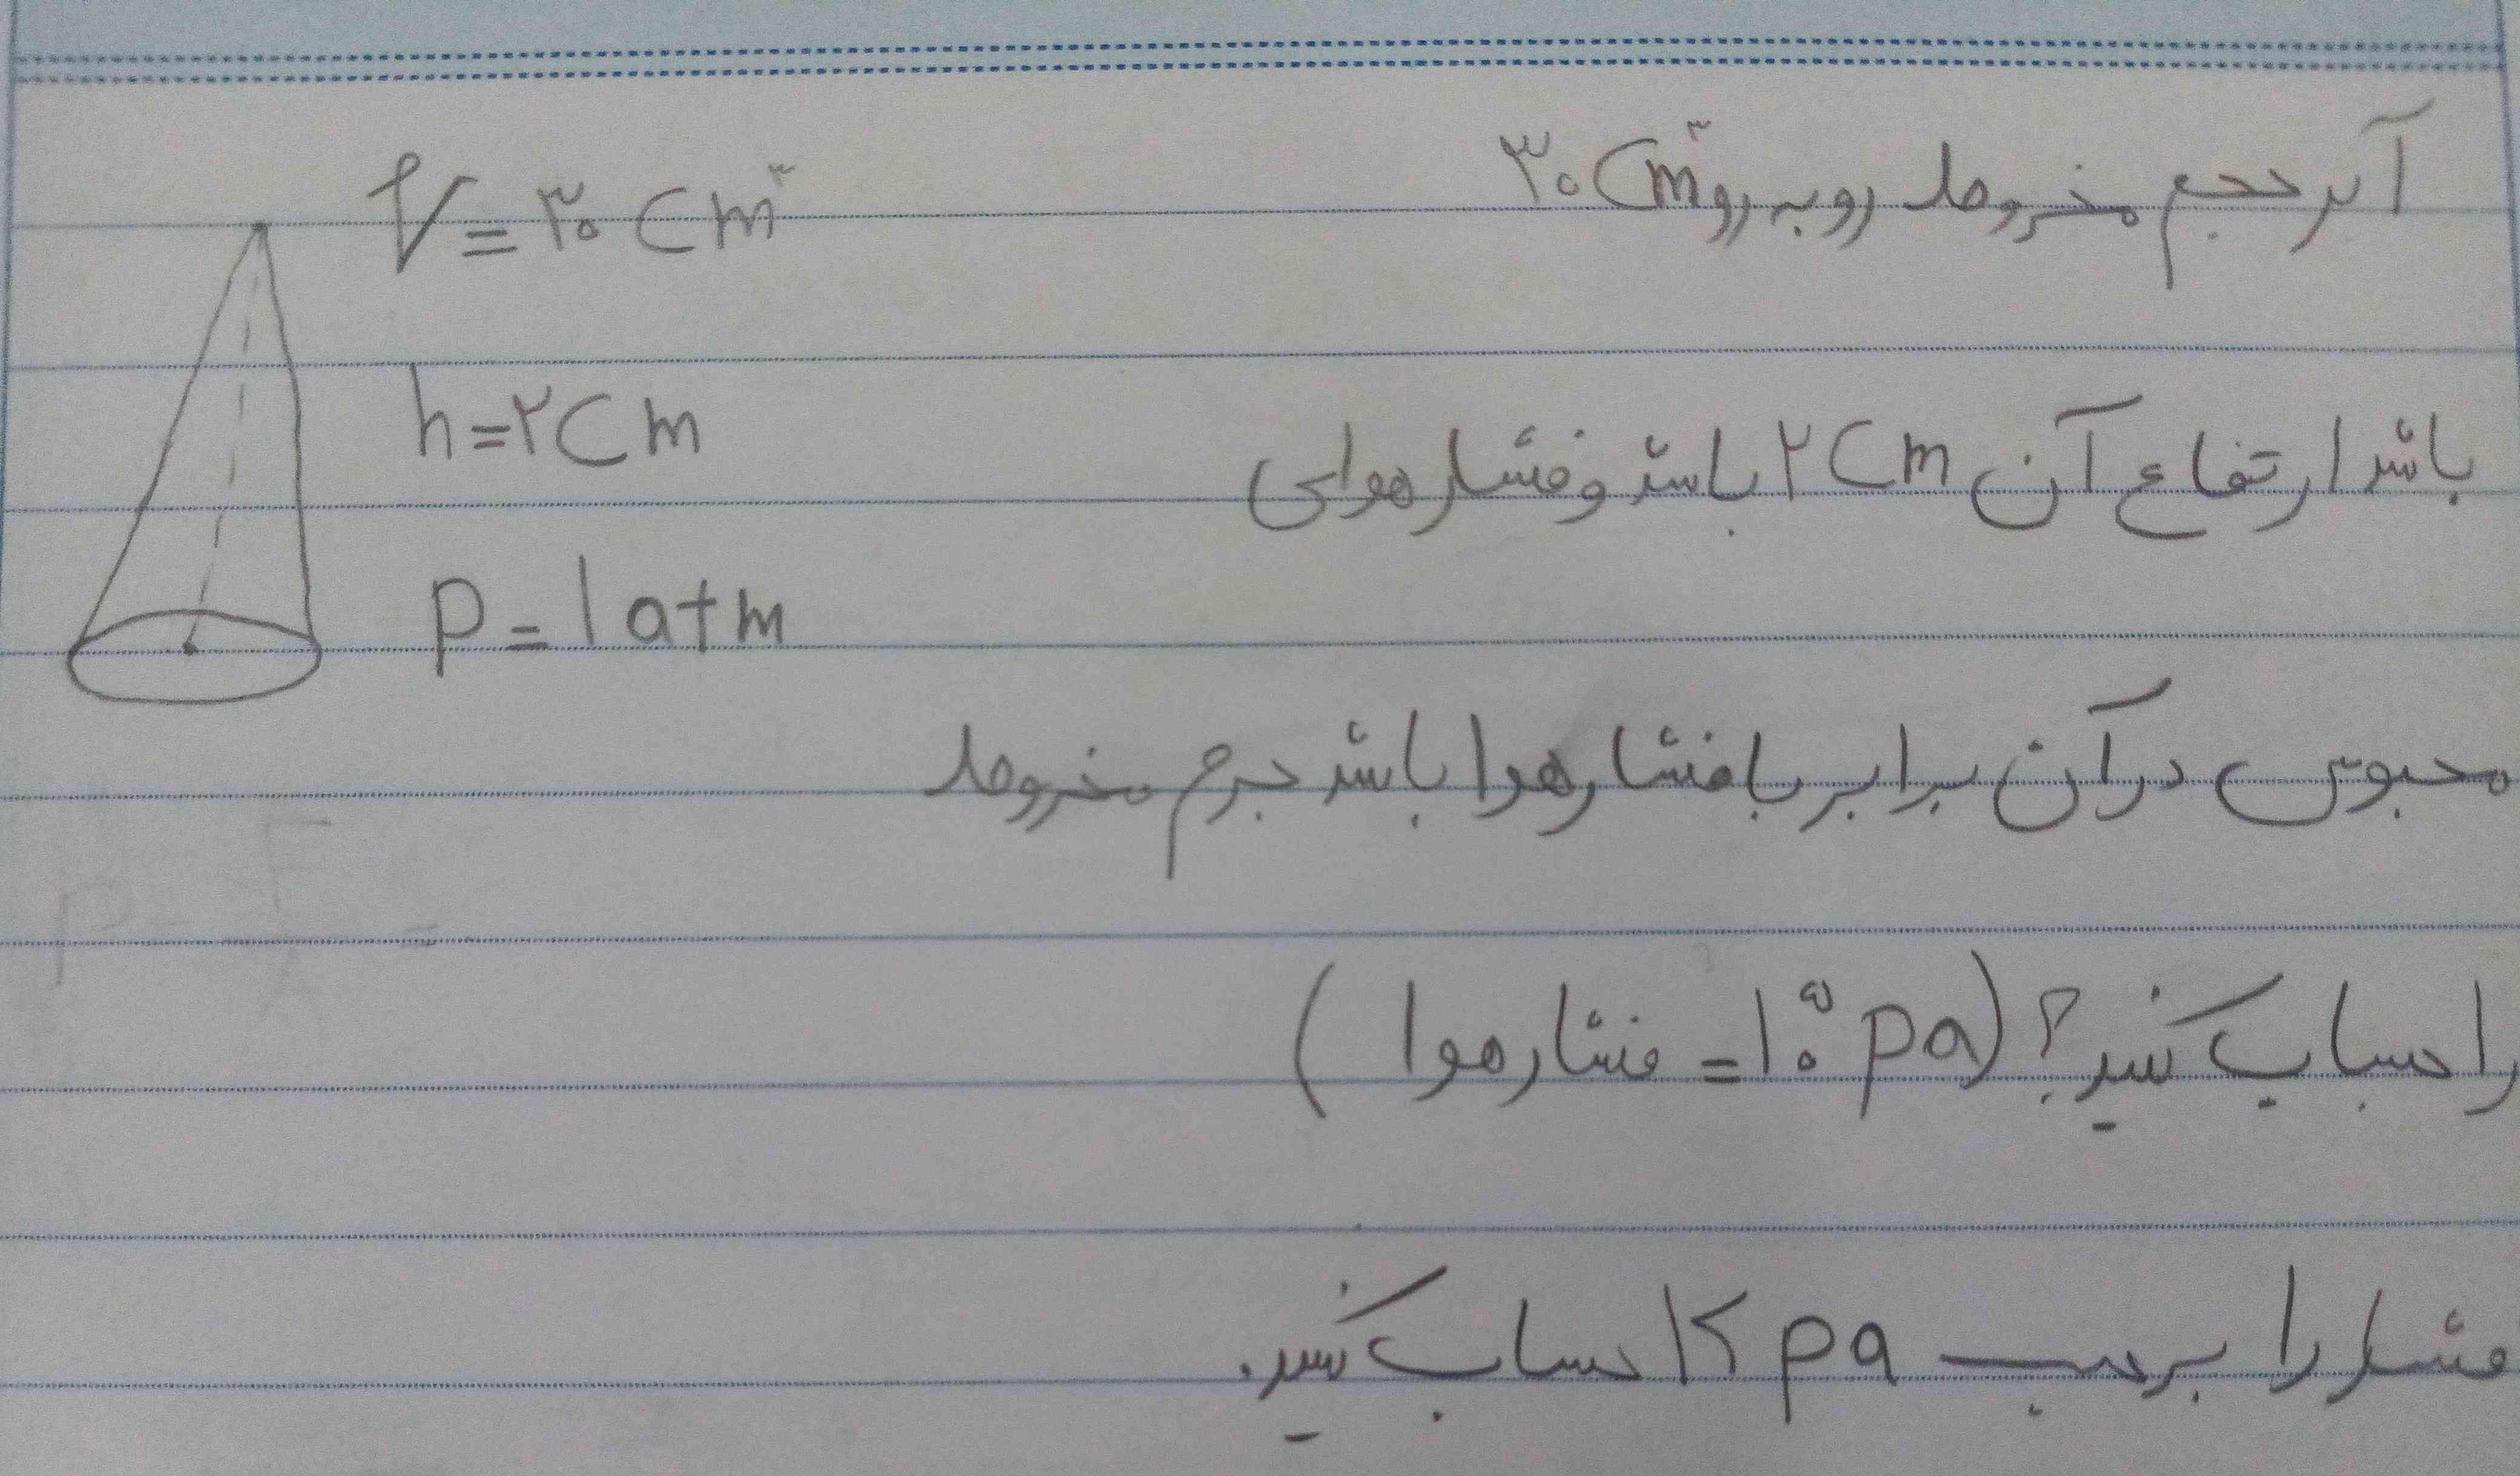 اگر حجم مخروط روبه رو ۳۰ Cm^۳
V = ۳۰ Cm^۳
باشد ارتفاع آن ۲ Cm باشد و فشار هوای
h = ۲ Cm
P = 1 atm
محبوس در آن برابر با فشار هوا باشد جرم مخروط
P = F/A =
را حساب کنید؟ (۱۰^۵ pa = فشار هوا)
فشار را برحسب Kpa حساب کنید.